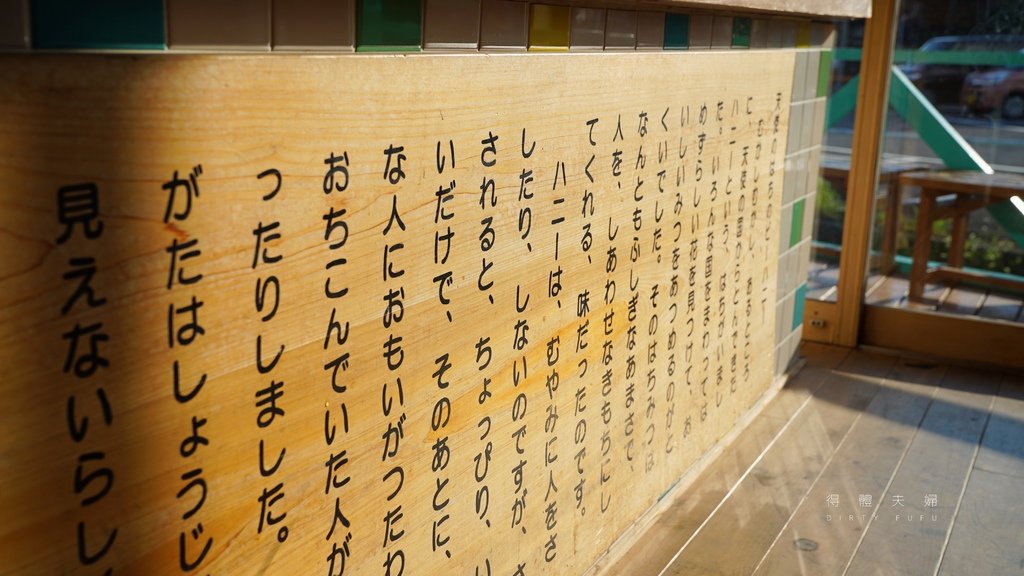 ハニーという、はちがいまし
た。いろんな国をまわっては
めずらしいはなを見つけて、お
いしいみつをあつめるのがと
くいでした。そのはちみつは
なんともふしぎなあまさで、
人を、しあわせなきもちにし
てくれる、味だったのです。
ハニーは、むやみに人をさ
したり、しないのですが、さ
されると、ちょっぴり、い
いだけで、そのあとに、
な人におもいがつたわ
おちこんでいた人が
ったりしました。
がたはしょうじ
見えないらし
得體夫婦
DIRTY FUFU